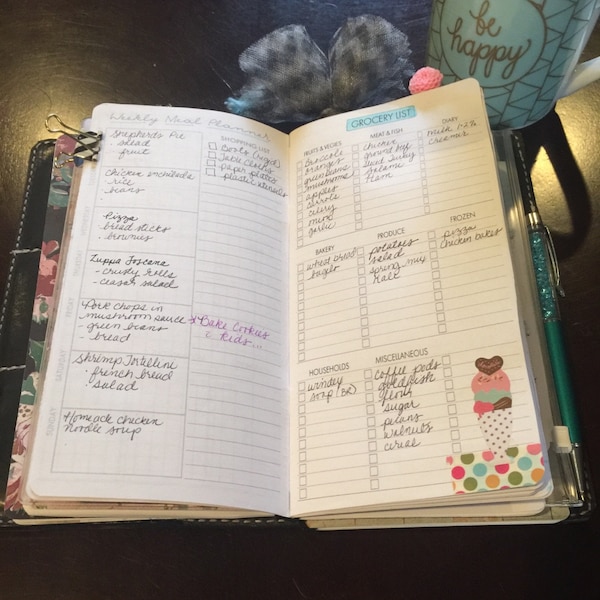 be
happy
Weekly Meal Planner
Shepherds Pie
- salad
- fruit
chicken enchilada
- rice
- beans
Pizza
bread sticks
- brownies
Zuppa Toscana
- crusty rolls
- ceasar salad
Pork chops in
mushroom sauce
- green beans
- bread
Shrimp Tortellini
- french bread
- salad
Homeade chicken
noodle soup
SUNDAY
SHOPPING LIST
Boots (
Take
paper plates
plastic utensils
*Bake Cookies
c kids...
GROCERY LIST
FRUITS & VEGGIES
broccoli
oranges
green beans
mushrooms
apples
carrots
celery
onion
garlic
MEAT & FISH
chicken
ground bf
sliced turkey
salami
ham
DIARY
milk 1-2%
creamer
BAKERY
wheat bread
bagels
PRODUCE
potatoes
salad
spring mix
kale
FROZEN
pizza
chicken bakes
HOUSEHOLDS
windex
soap (BR)
MISCELLANEOUS
coffee pods
goldfish
flour
sugar
pecans
walnuts
cereal